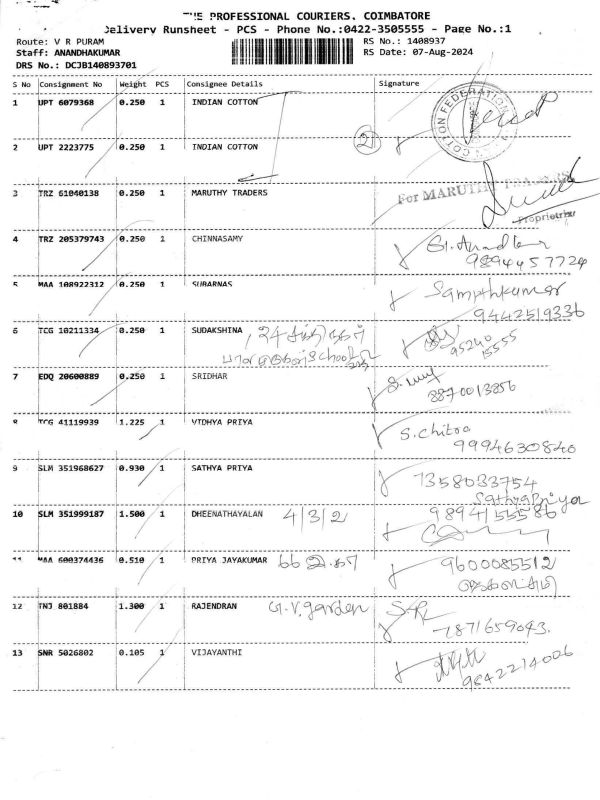 THE PROFESSIONAL COURIERS, COIMBATORE
Delivery Runsheet - PCS - Phone No.:0422-3505555 - Page No.:1
Route: V R PURAM RS No.: 1408937
Staff: ANANDHAKUMAR RS Date: 07-Aug-2024
DRS No.: DCJB140893701
S No Consignment No Weight PCS Consignee Details Signature
1 UPT 6079368 0.250 1 INDIAN COTTON
2 UPT 2223775 0.250 1 INDIAN COTTON 2
COTTON FEDERATION
3 TRZ 61040138 0.250 1 MARUTHY TRADERS For MARUTHY TRADERS
Proprietrix
4 TRZ 205379743 0.250 1 CHINNASAMY
9894457724
5 MAA 108922312 0.250 1 SUBARNAS Sampthkumar
9442519336
6 TCG 10211334 0.250 1 SUDAKSHINA
95240
15555
7 EDQ 20600889 0.250 1 SRIDHAR
8870013856
8 TCG 41119939 1.225 1 VIDHYA PRIYA S. Chitra
9994630840
9 SLM 351968627 0.930 1 SATHYA PRIYA 7358033754
Sathyapriya
10 SLM 351999187 1.500 1 DHEENATHAYALAN 4/3/2
11 MAA 600374436 0.510 1 PRIYA JAYAKUMAR 66 9600085512
12 TNJ 801884 1.300 1 RAJENDRAN G.V. garden
7871659043.
13 SNR 5026802 0.105 1 VIJAYANTHI
9842214006